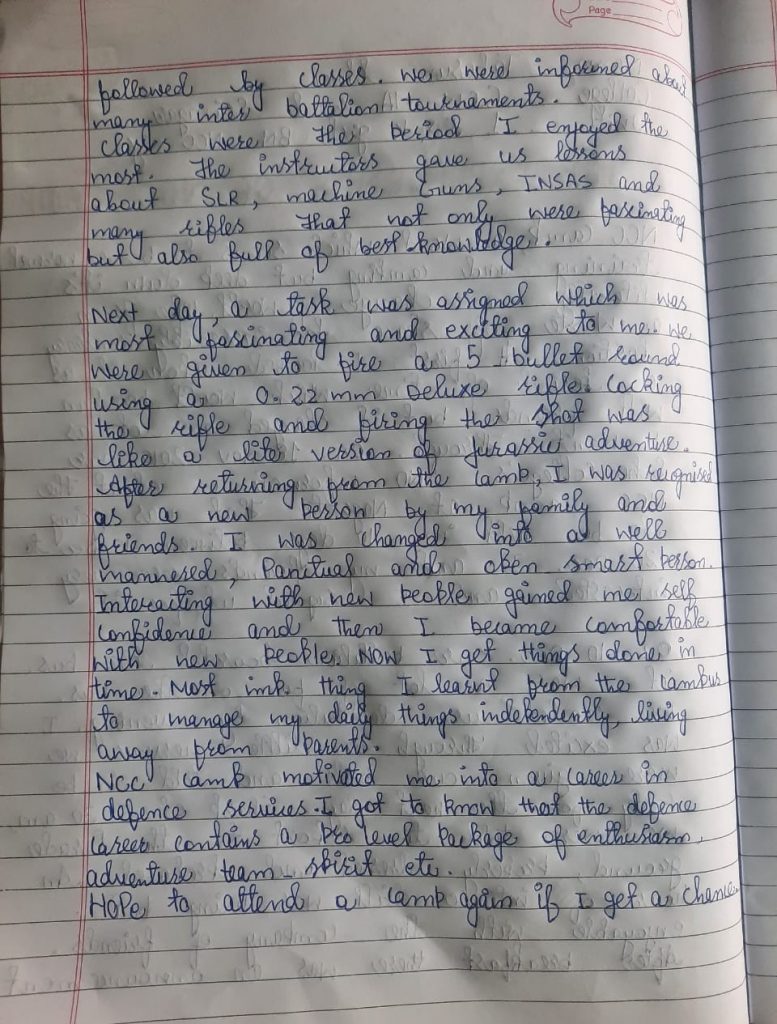 Page
followed by classes. we were informed about
many inter battalion tournaments.
classes were the period I enjoyed the
most. The instructors gave us lessons
about SLR, machine Guns, INSAS and
many rifles that not only were fascinating
but also full of best knowledge.
Next day, a task was assigned which was
most fascinating and exciting to me. we
were given to fire a 5 bullet round
using a 0.22 mm Deluxe rifle. Cocking
the rifle and firing the shot was
like a lite version of Jurassic adventure.
After returning from the camp, I was recognised
as a new person by my family and
friends. I was changed into a well
mannered, Panctual and open smart person.
Interacting with new people gained me self
confidence and then I became comfortable
with new people. NOW I get things done in
time. Most imp. thing I learnt from the campus
to manage my daily things independently, living
away from parents.
NCC camp motivated me into a career in
defence services. I got to know that the defence
career contains a pro level package of enthusiasm,
adventure team - spirit etc.
HOPe to attend a camp again if I get a chance